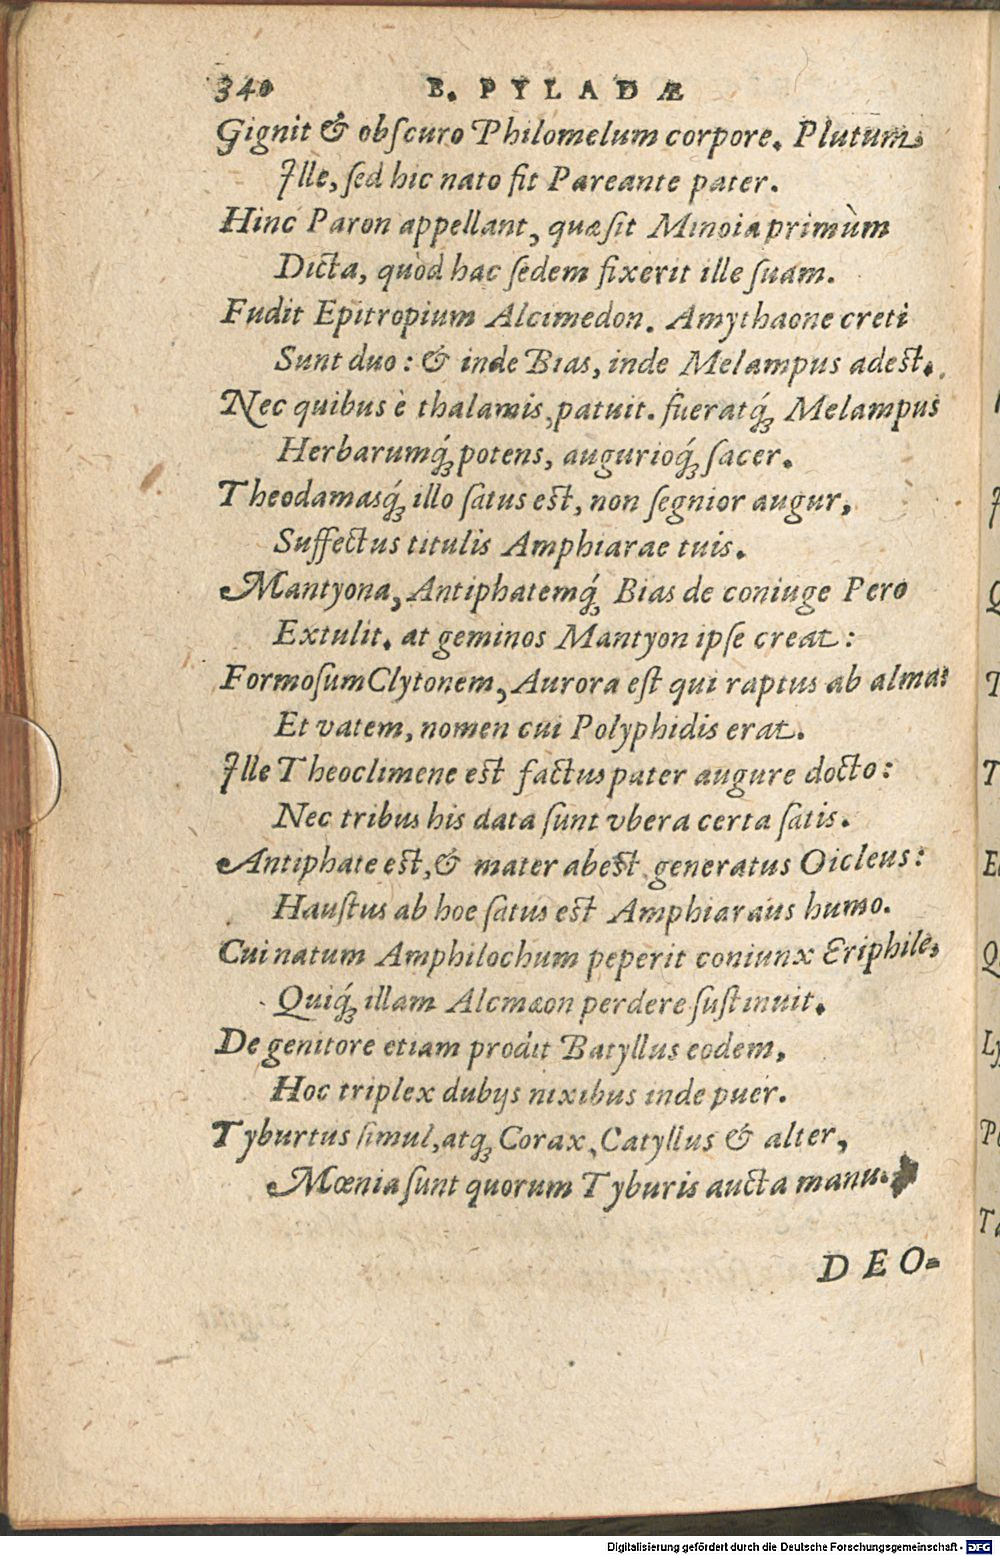 340 B. PYLADÆ
Gignit & obſcuro Philomelum corpore. Plutum
Ille, ſed hic nato fit Pareante pater.
Hinc Paron appellant, quæ ſit Minoia primùm
Dicta, quòd hac ſedem fixerit ille ſuam.
Fudit Epitropium Alcimedon. Amythaone creti
Sunt duo: & inde Bias, inde Melampus adeſt.
Nec quibus è thalamis, patuit. fueratq́; Melampus
Herbarumq́; potens, augurioq́; ſacer.
Theodamasq́; illo ſatus eſt, non ſegnior augur,
Suffectus titulis Amphiarae tuis.
Mantyona, Antiphatemq́; Bias de coniuge Pero
Extulit. at geminos Mantyon ipſe creat:
Formoſum Clytonem, Aurora eſt qui raptus ab alma:
Et vatem, nomen cui Polyphidis erat.
Ille Theoclimene eſt factus pater augure docto:
Nec tribus his data ſunt vbera certa ſatis.
Antiphate eſt, & mater abeſt generatus Oicleus:
Hauſtus ab hoe ſatus eſt Amphiaraus humo.
Cui natum Amphilochum peperit coniunx Eriphile,
Quiq́; illam Alcmæon perdere ſuſtinuit.
De genitore etiam prodit Batyllus eodem,
Hoc triplex dubijs nixibus inde puer.
Tyburtus ſimul, atq; Corax, Catyllus & alter,
Mœnia ſunt quorum Tyburis aucta manu.
DEO-
Digitalisierung gefördert durch die Deutsche Forschungsgemeinschaft - DFG